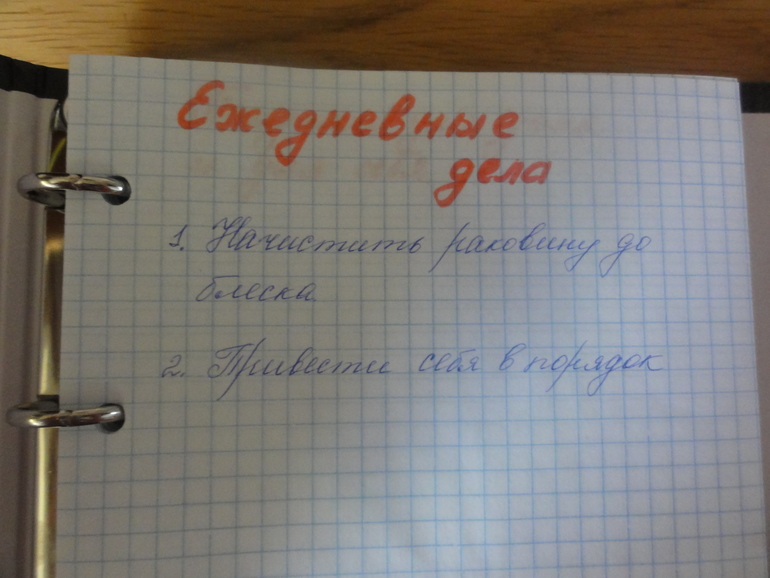 Ежедневные
дела
1. Начистить раковину до
блеска.
2. Привести себя в порядок